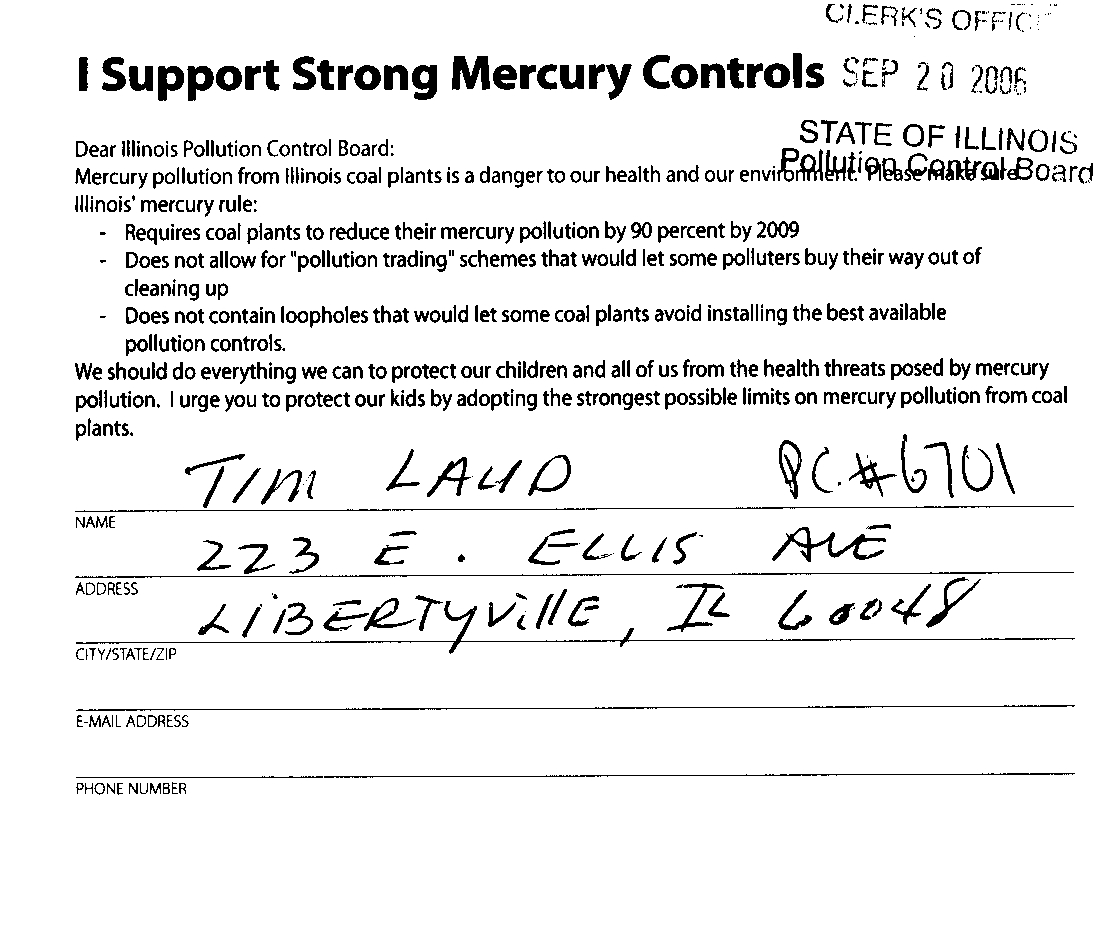 CLERK'S OFFICE
I Support Strong Mercury Controls
SEP 20 2006
STATE OF ILLINOIS
Pollution Control Board
Dear Illinois Pollution Control Board:
Mercury pollution from Illinois coal plants is a danger to our health and our environment. Please make sure
Illinois' mercury rule:
- Requires coal plants to reduce their mercury pollution by 90 percent by 2009
- Does not allow for "pollution trading" schemes that would let some polluters buy their way out of
cleaning up
- Does not contain loopholes that would let some coal plants avoid installing the best available
pollution controls.
We should do everything we can to protect our children and all of us from the health threats posed by mercury
pollution. I urge you to protect our kids by adopting the strongest possible limits on mercury pollution from coal
plants.
TIM LAUD PC#6701
NAME
223 E. ELLIS AVE
ADDRESS
LIBERTYVillE, IL 60048
CITY/STATE/ZIP
E-MAIL ADDRESS
PHONE NUMBER